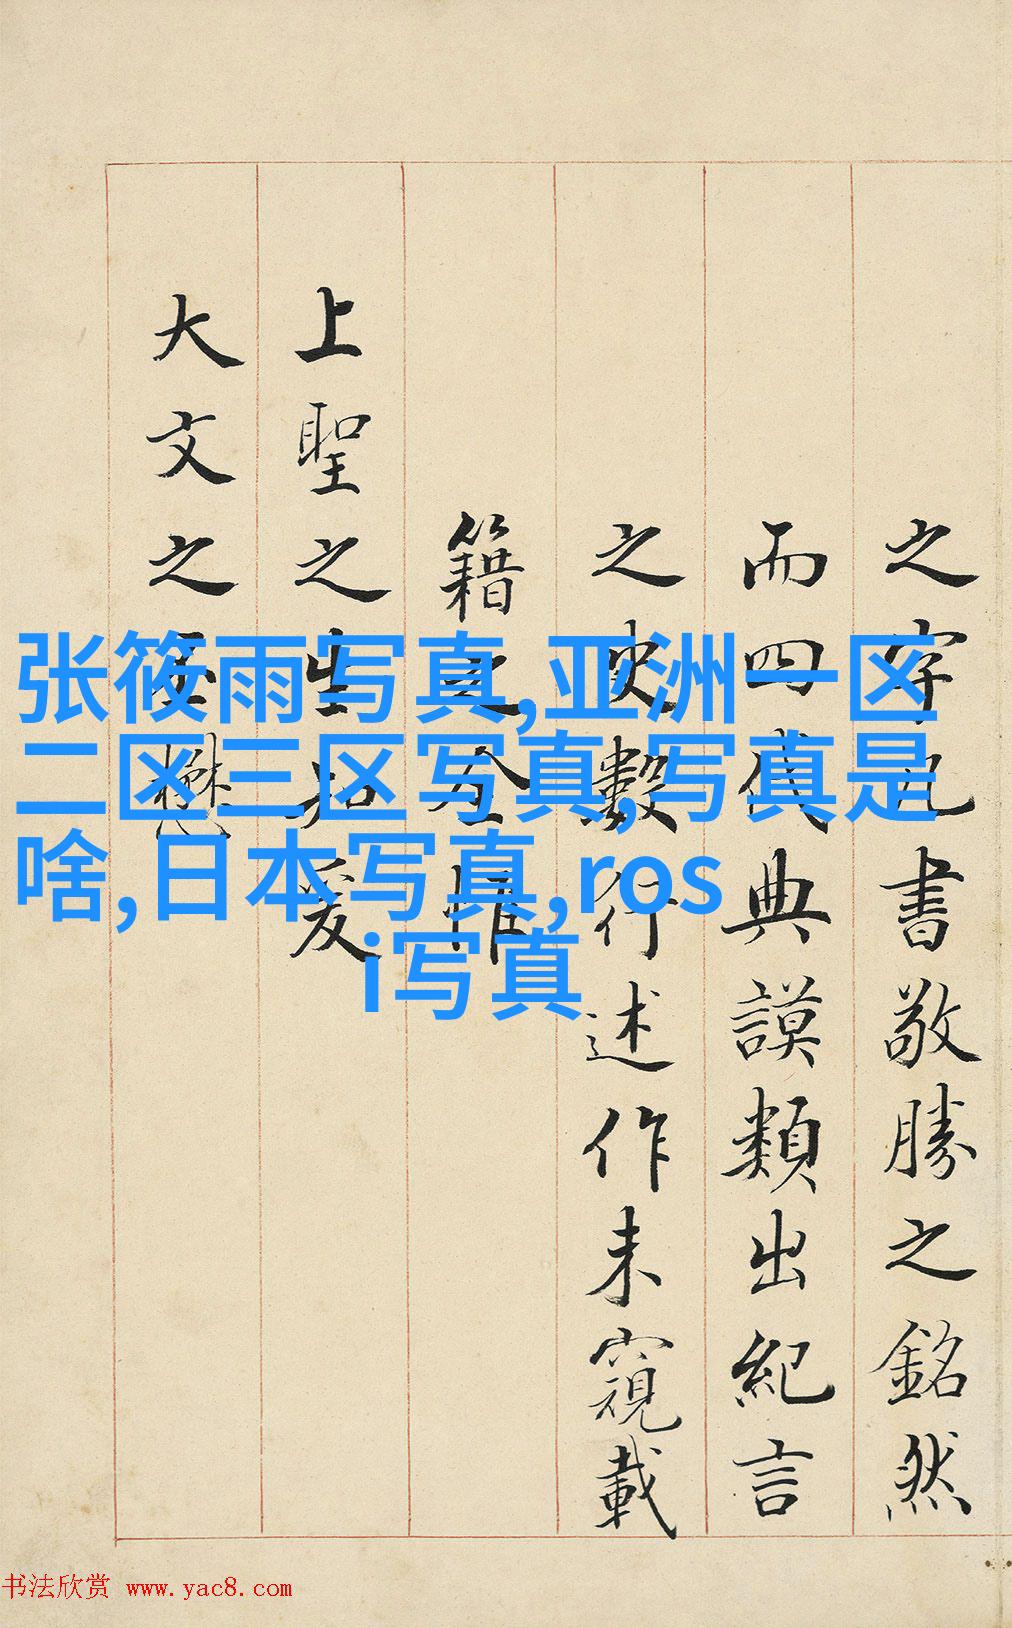 之字丸書敬勝之銘然
而四代典謨類出紀言
之史數行述作未窺載
籍之全惟
上聖之生知爰
大文之丕懋
张筱雨写真,亚洲一区
二区三区写真,写真是
啥,日本写真,ros
i写真
书法欣赏 www.yac8.com